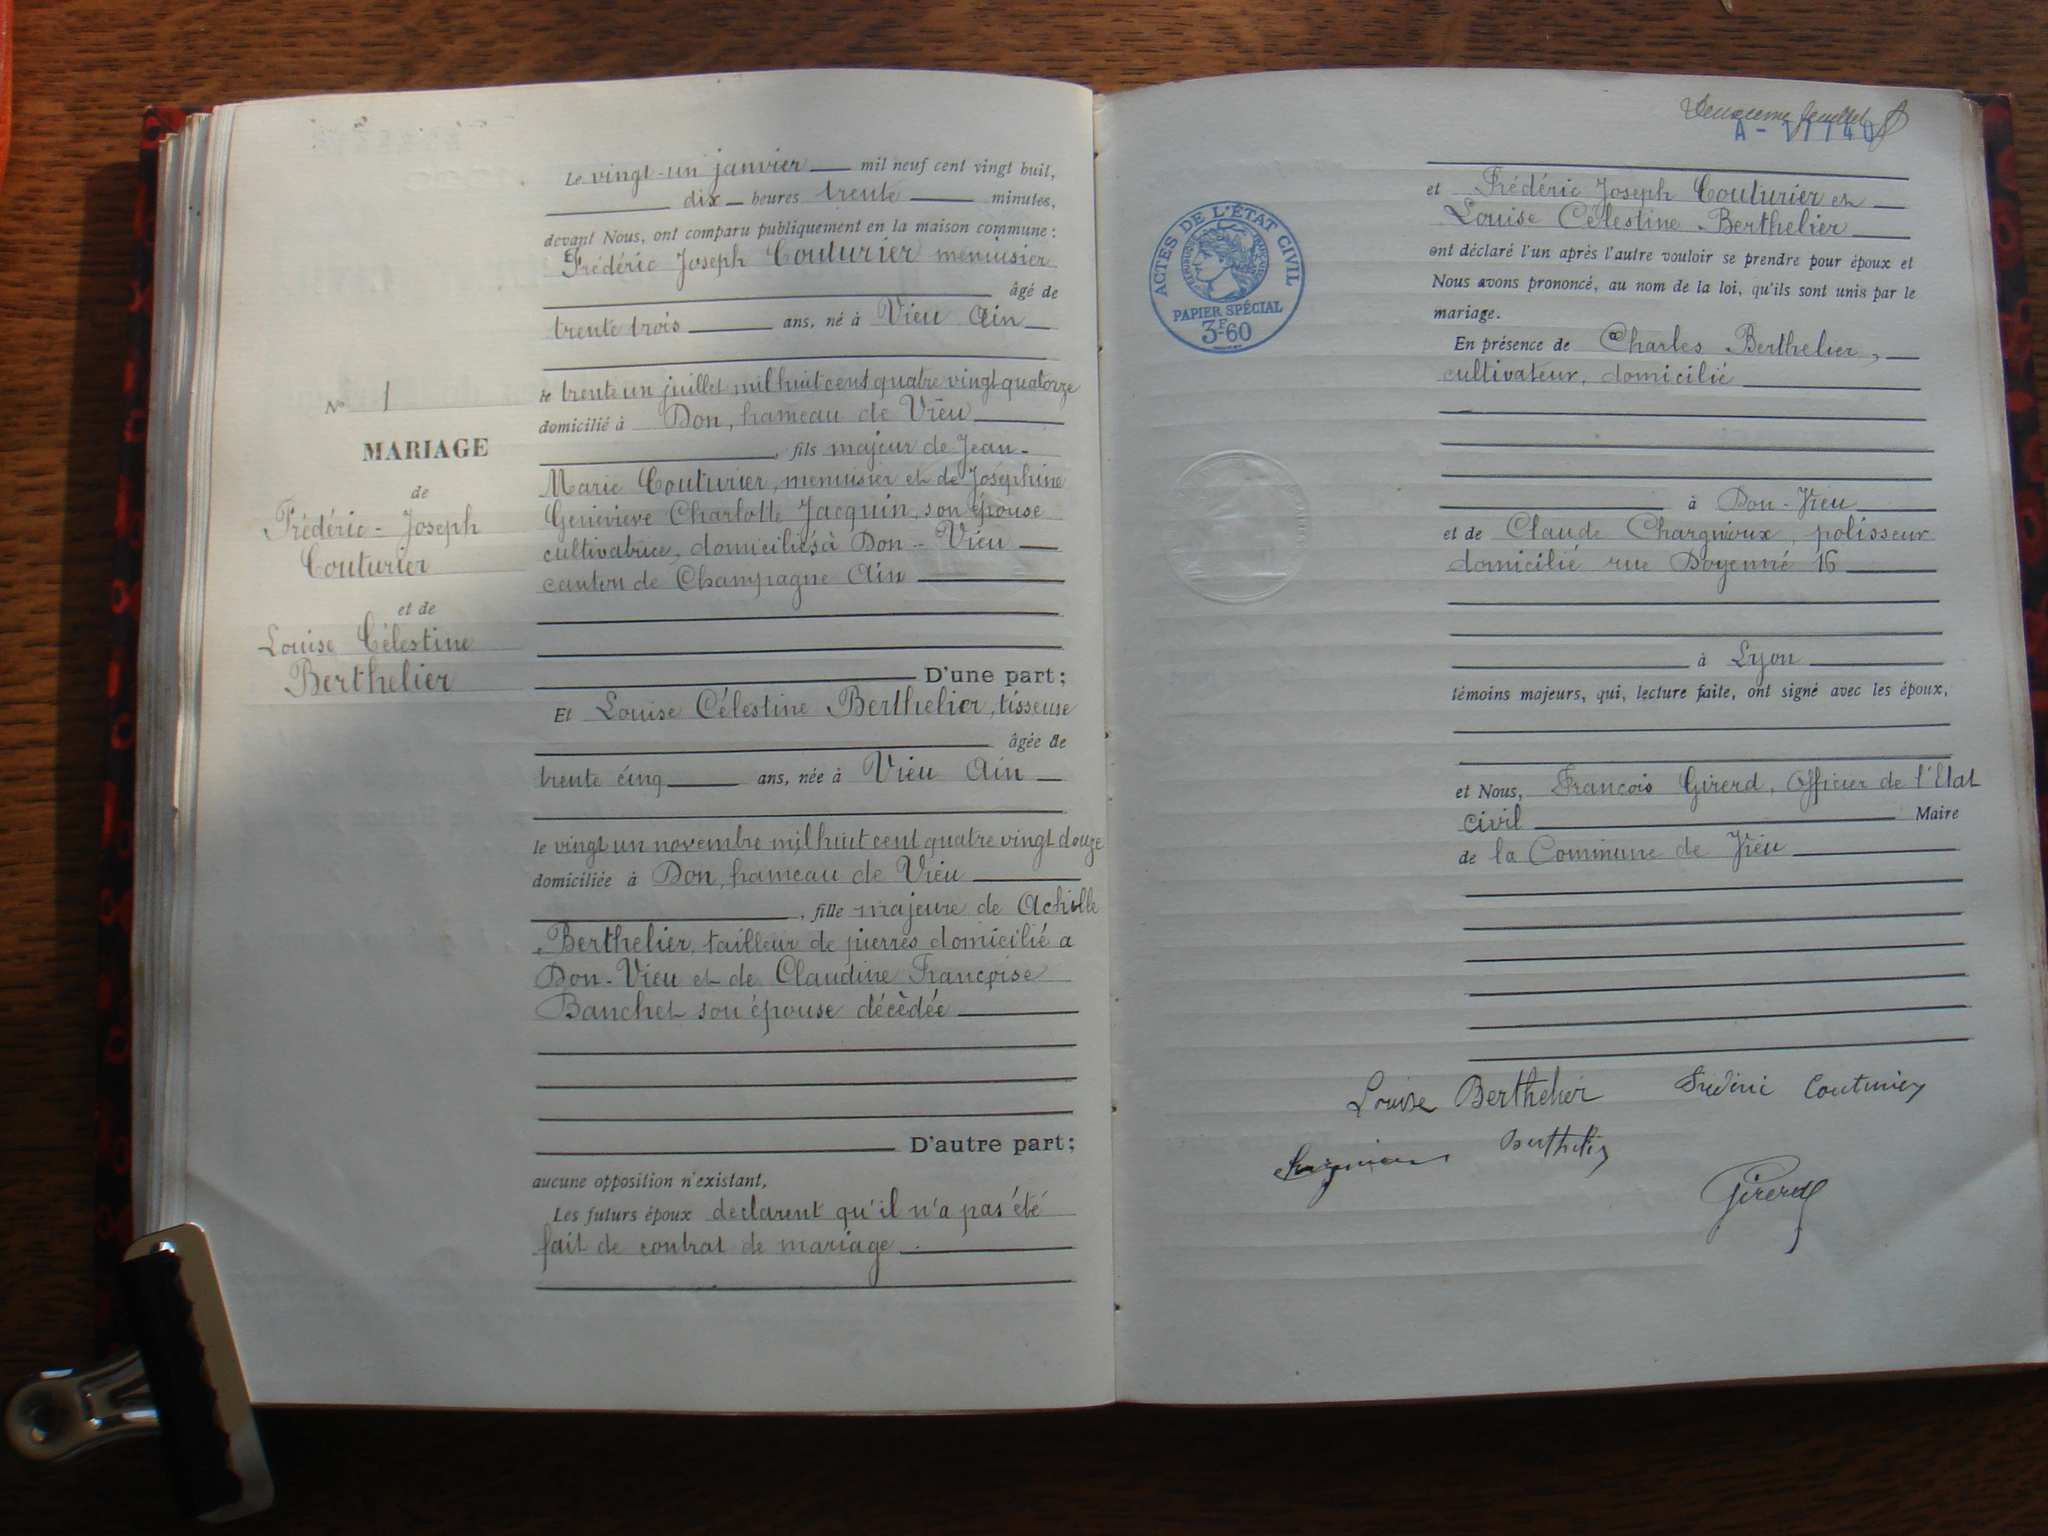 Le vingt-un janvier mil neuf cent vingt huit,
dix heures trente minutes,
devant Nous, ont comparu publiquement en la maison commune :
Frédéric Joseph Couturier menuisier
âgé de
trente trois ans, né à Vieu Ain
le trente un juillet mil huit cent quatre vingt quatorze
domicilié à Don, hameau de Vieu
, fils majeur de Jean-
Marie Couturier, menuisier et de Joséphine
Genevieve Charlotte Jacquin, son épouse
cultivatrice, domiciliés à Don - Vieu
canton de Champagne Ain
D'une part;
Et Louise Célestine Berthelier, tisseuse
âgée de
trente cinq ans, née à Vieu Ain
le vingt un novembre mil huit cent quatre vingt douze
domiciliée à Don, hameau de Vieu
, fille majeure de Achille
Berthelier, tailleur de pierres domicilié a
Don-Vieu et de Claudine Françoise
Banchet son épouse décèdée
D'autre part;
aucune opposition n'existant,
Les futurs époux declarent qu'il n'a pas été
fait de contrat de mariage.
N° 1
MARIAGE
de
Frédéric - Joseph
Couturier
et de
Louise Célestine
Berthelier
Deuxième feuillet
ACTES DE L'ÉTAT CIVIL
PAPIER SPÉCIAL
3F60
et Frédéric Joseph Couturier et
Louise Célestine Berthelier
ont déclaré l'un après l'autre vouloir se prendre pour époux et
Nous avons prononcé, au nom de la loi, qu'ils sont unis par le
mariage.
En présence de Charles Berthelier,
cultivateur, domicilié
à Don-Vieu
et de Claude Chargnioux, polisseur
domicilié rue Doyenné 16
à Lyon
témoins majeurs, qui, lecture faite, ont signé avec les époux,
et Nous, François Girerd, Officier de l'Etat
Civil Maire
de la Commune de Vieu
Louise Berthelier Frédéric Couturier
Berthelier
Girerd